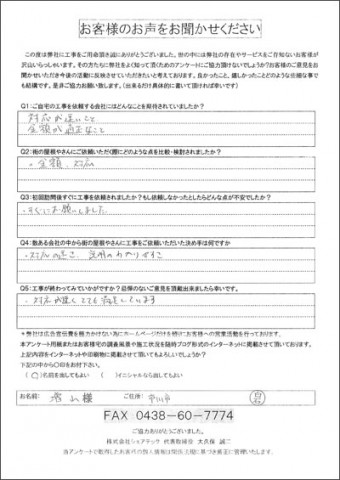 お客様のお声をお聞かせください
この度は弊社に工事をご用命頂き誠にありがとうございました。街の中には弊社の存在やサービスをご存知ないお客様が
沢山いらっしゃいます。その方たちに弊社をよく知って頂くためのアンケートにご協力頂けないでしょうか？お客様のご意見をお
聞かせいただき今後の活動に反映させていただきたいと考えております。良かったこと、嬉しかったことなどのどの些細な事で
も結構です。是非ご協力お願い致します。（出来るだけ具体的に書いて頂ければ幸いです）
Q1：ご自宅の工事を依頼する会社にはどんなことを期待されていましたか？
対応が速いこと
金額が適正なこと
Q2：街の屋根やさんにご依頼いただく際にどのような点を比較・検討されましたか？
・金額、対応
Q3：初回訪問後すぐに工事を依頼されましたか？もし依頼しなかったとしたらどんな点が不安でしたか？
・すぐにお願いしました
Q4：数ある会社の中から街の屋根やさんに工事をご依頼いただいた決め手は何ですか
・対応の速さ、説明のわかりやすさ
Q5：工事が終わってみていかがですか？忌憚のないご意見を頂戴出来ましたら幸いです。
・対応が速くとても満足しています
＊弊社は広告宣伝費を極力かけない為にホームページだけを頼りにお客様への営業活動を行っております。
本アンケート用紙またはお客様宅の調査風景や施工状況を随時ブログ形式のインターネットに掲載させて頂いております。
上記内容をインターネットや印刷物に掲載させて頂いてもよろしいでしょうか？
下記の中から○印をお付下さい。
（○）名前を出してもよい （ ）イニシャルなら出してもよい
お名前： 様 ご住所：市川市
FAX 0438-60-7774
ご協力ありがとうございました。
株式会社シェアテック 代表取締役 大久保 誠二
当アンケートで取得したお客様の個人情報は関係法規に基づき厳正に管理いたします。